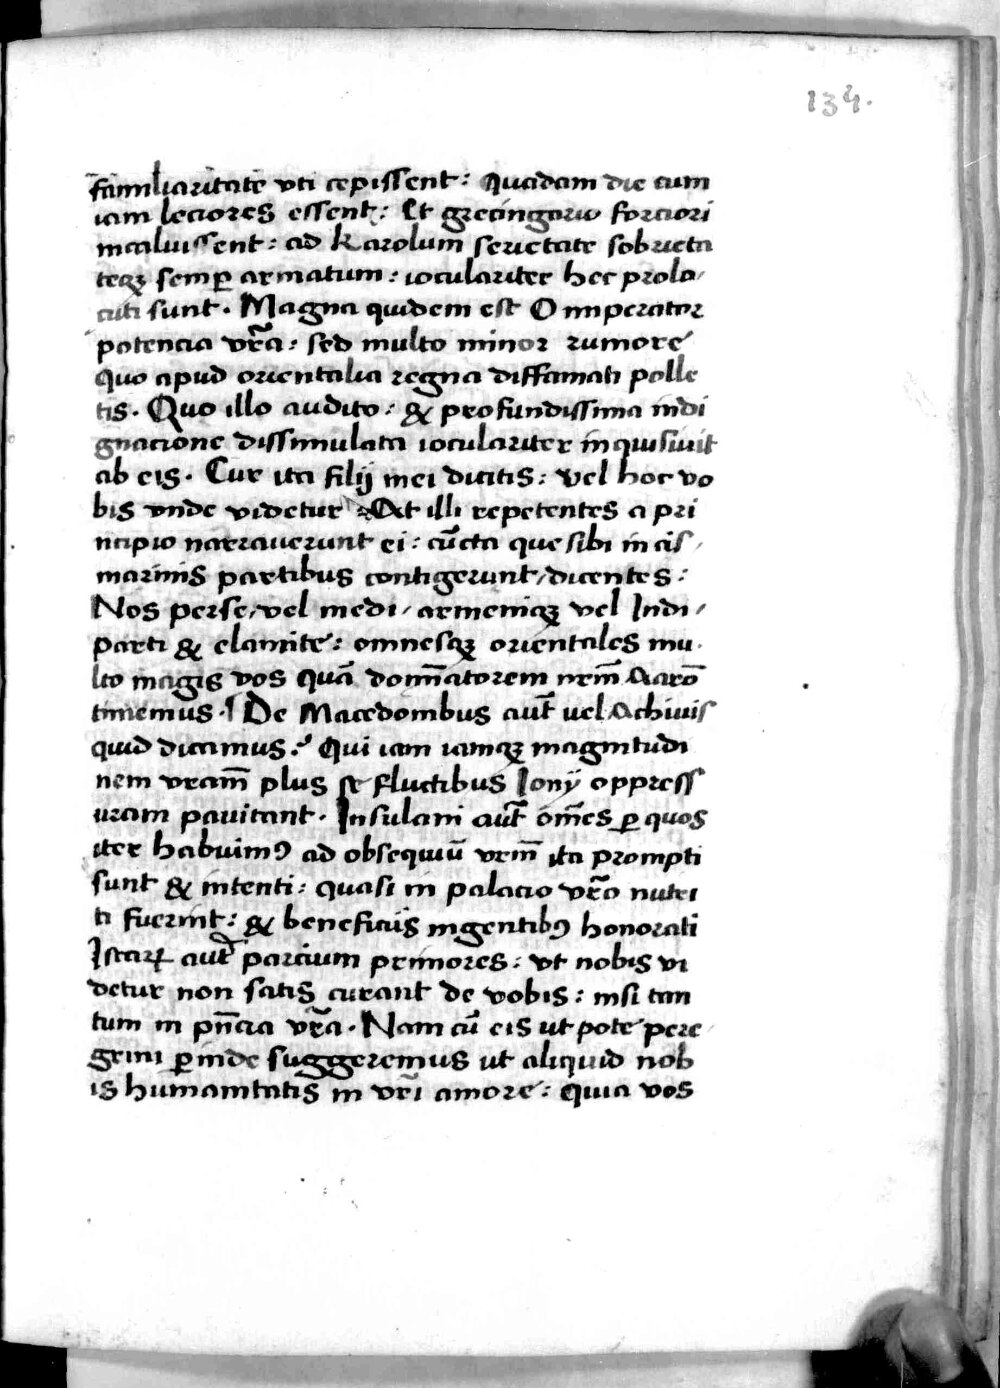 134.
familiaritate vti cepissent: Quadam die cum
iam leciores essent: Et grecingario forciori
incaluissent: ad Karolum serietate sobrieta
teqꝫ semꝑ armatum: ioculariter hec prolo⸗
cuti sunt. Magna quidem est O imperator
potencia vr̄a: sed multo minor rumore
Quo apud orientalia regna diffamati polle
tis. Quo illo audito: & profundissima indi
gnacione dissimulata ioculariter inquisiuit
ab eis. Cur ita filij mei dicitis: vel hoc vo
bis vnde videtur At illi repetentes a pri
ncipio narrauerunt ei: cūcta que sibi in cis⸗
marinis partibus contigerunt/dicentes:
Nos perse/vel medi/ armeniqꝫ vel Indi/
parti & elamite: omnesqꝫ orientales mu⸗
lto magis vos quā dom̄atorem nrm̄ Aarō
timemus. De Macedonibus aut̄ uel Achiuis
quid dicamus. Qui iam iamqꝫ magnitudi
nem vram̄ plus se fluctibus Ionij oppress
uram pauitant. Insulani aut̄ om̄es ꝑ quos
iter habuimꝰ ad obsequiū vrm̄ ita prompti
sunt & intenti: quasi in palacio vr̄o nutri
ti fuerint: & beneficiis ingentibꝰ honorati
Istaꝝ aut̄ parcium primores: vt nobis vi
detur non satis curant de vobis: nisi tan
tum in pn̄cia vr̄a. Nam cū eis ut pote pere⸗
grini ꝑinde suggeremus ut aliquid nob
is humanitatis in vr̄i amore: quia vos